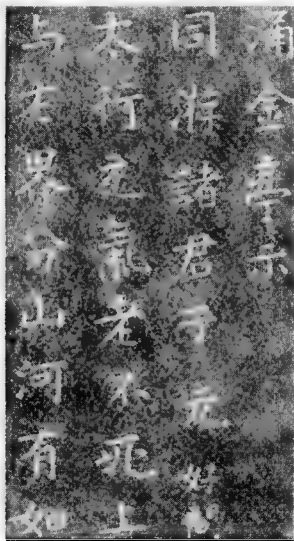 涌金亭示
同游諸君子元好問
太行元氣老不死上
与左界分山河有如